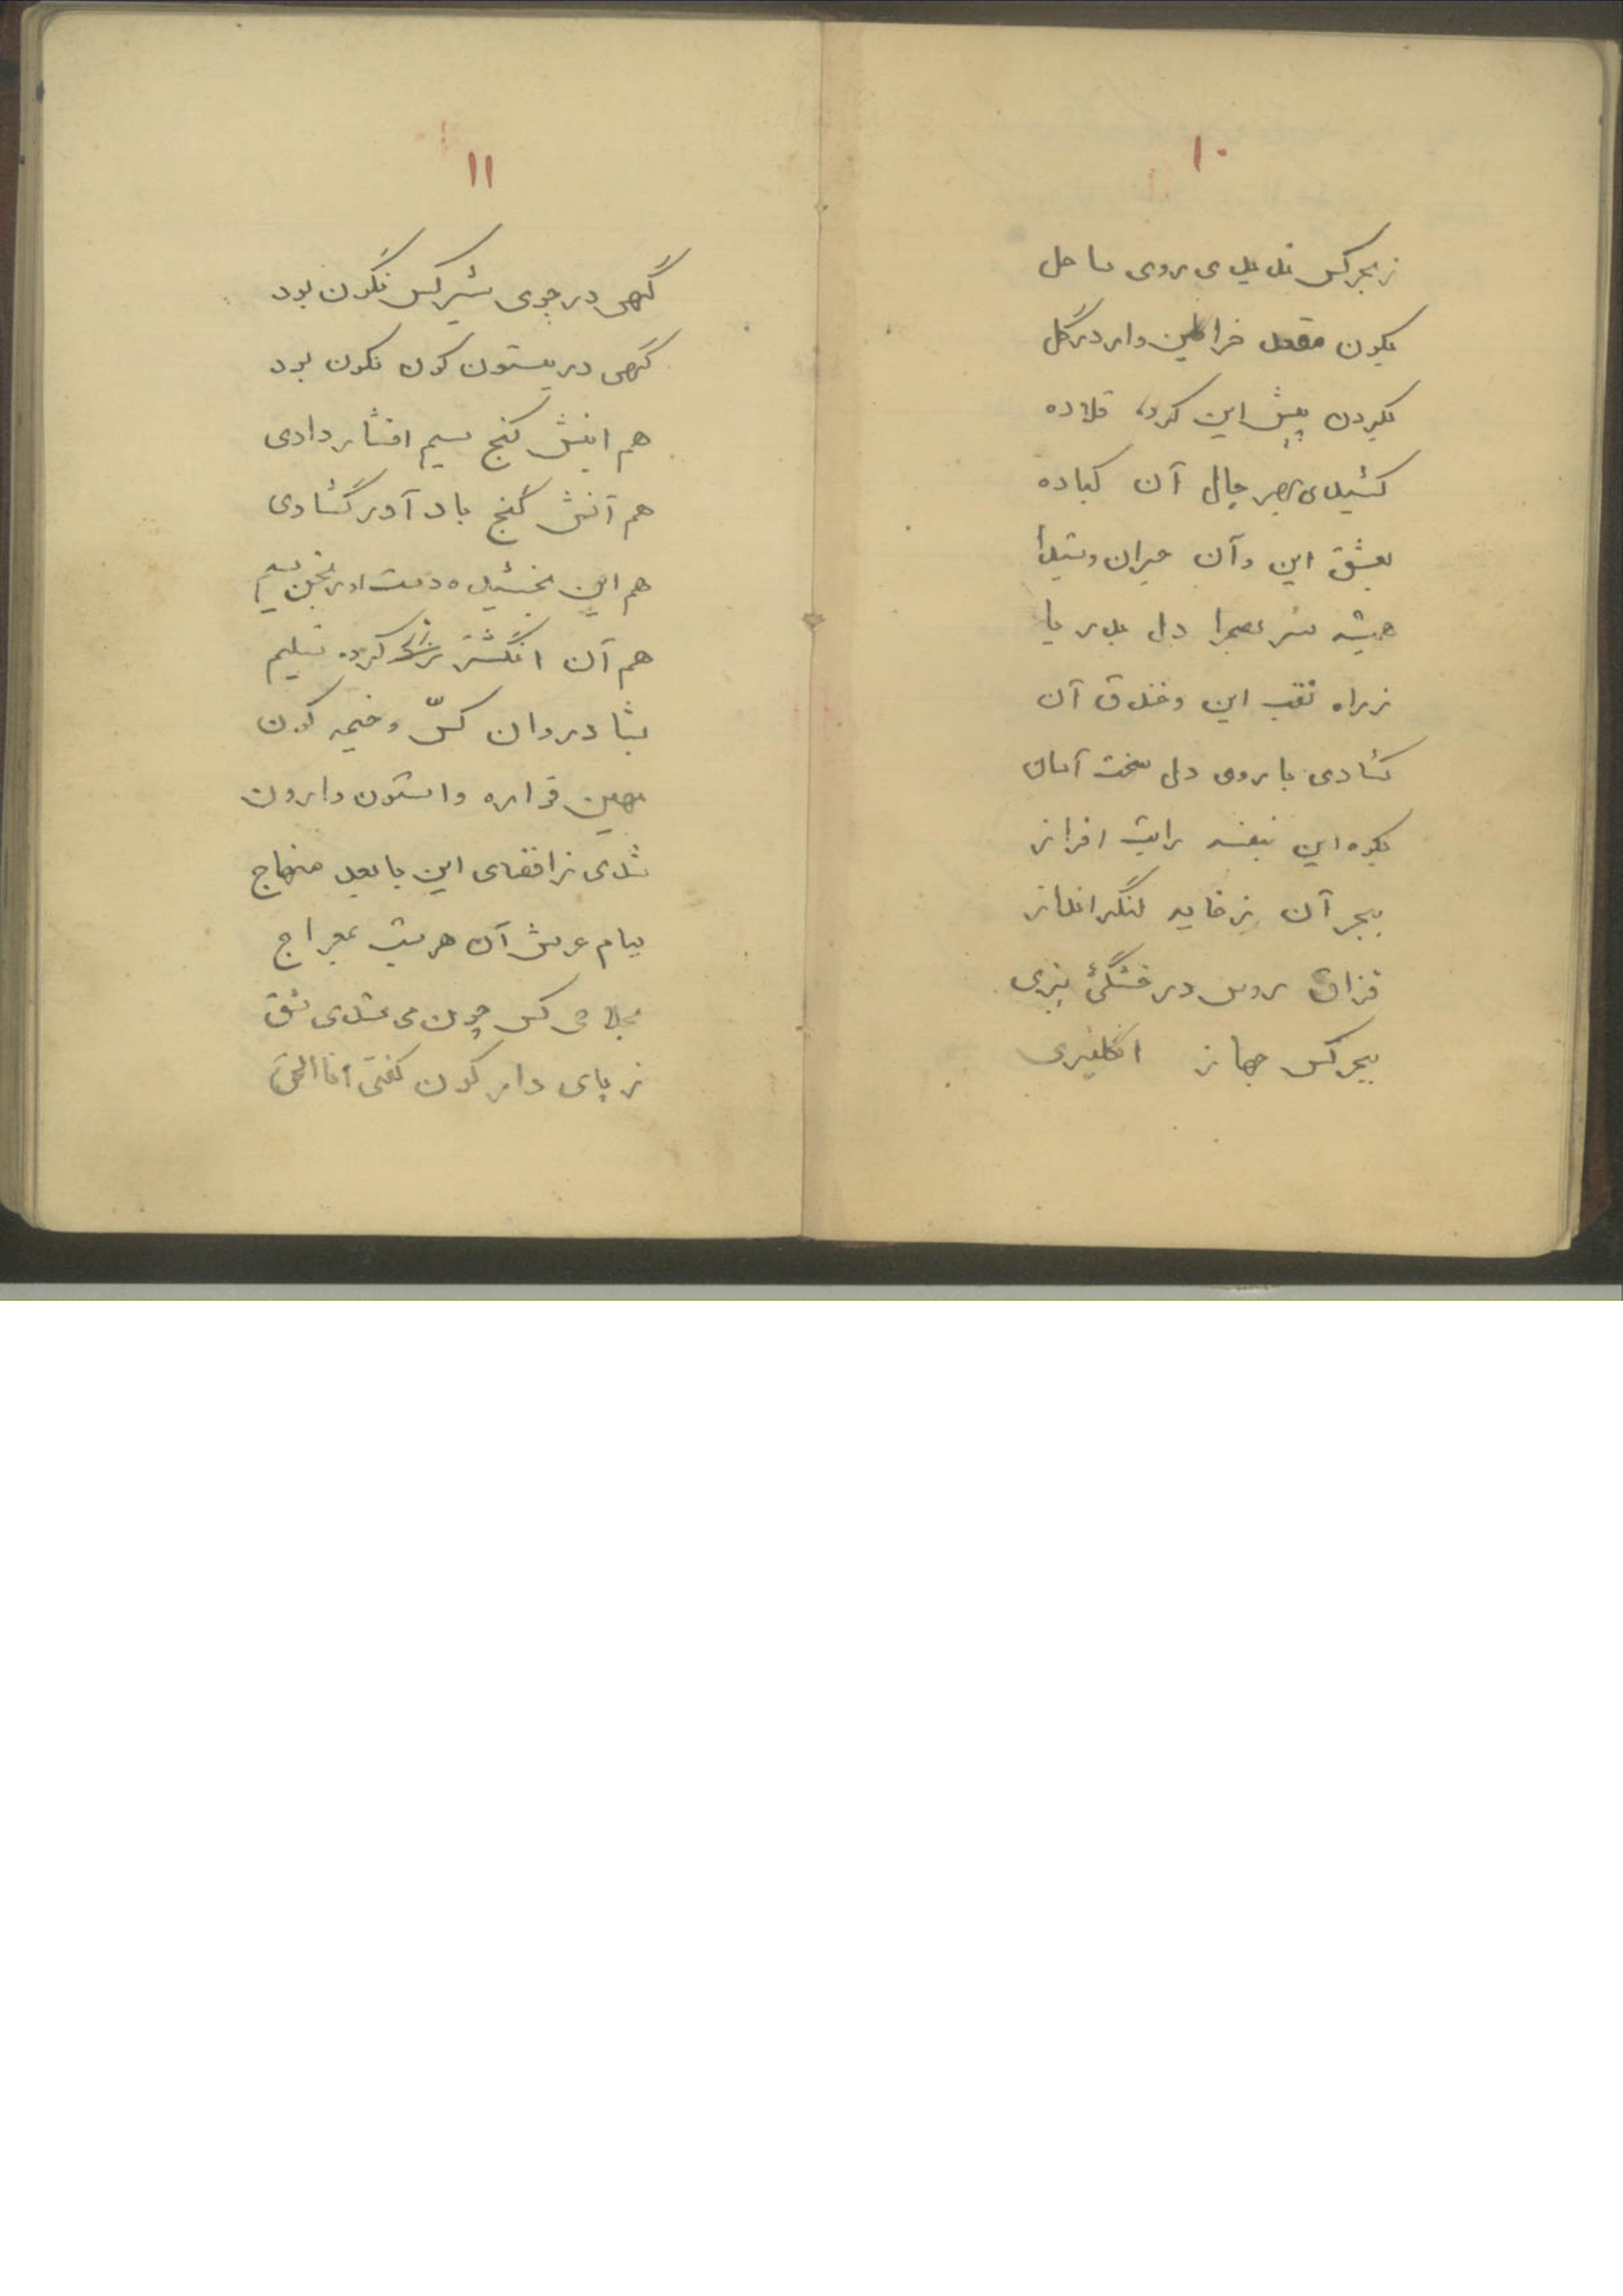 ۱۰
ز بحر کس ندیدی روی ساحل
بکون مقعد خراطین وار در گل
بگردن پیش این کرده قلاده
کشیدی بهر جال آن کباده
بعشق این و آن حیران و شیدا
همیشه سر بصحرا دل بدریا
ز راه نقب این و خندق آن
گشادی باروی دل سخت آسان
بکوه این نیفسه رایت افراز
ببحر آن ز خایه لنگر انداز
قزاق روس در خشگئ بتری
ببحر کس جهاز انگلیزی
۱۱
گهی در جوی شیر کس نگون بود
گهی در بیستون کون نکون بود
هم اینش گنج سیم افشار دادی
هم آنش گنج باد آور گشادی
هم این بخشیده دست اورنجن سیم
هم آن انگشتر کرده تسلیم
بشادروان کسّ و خیمه کون
مهین فواره و استون وارون
شدی ز اقصای این با بعد منهاج
ببام عرش آن هر شب بمعراج
بجلا می کس چون می شدی شق
ز پای دار کون گفتی انا الحق